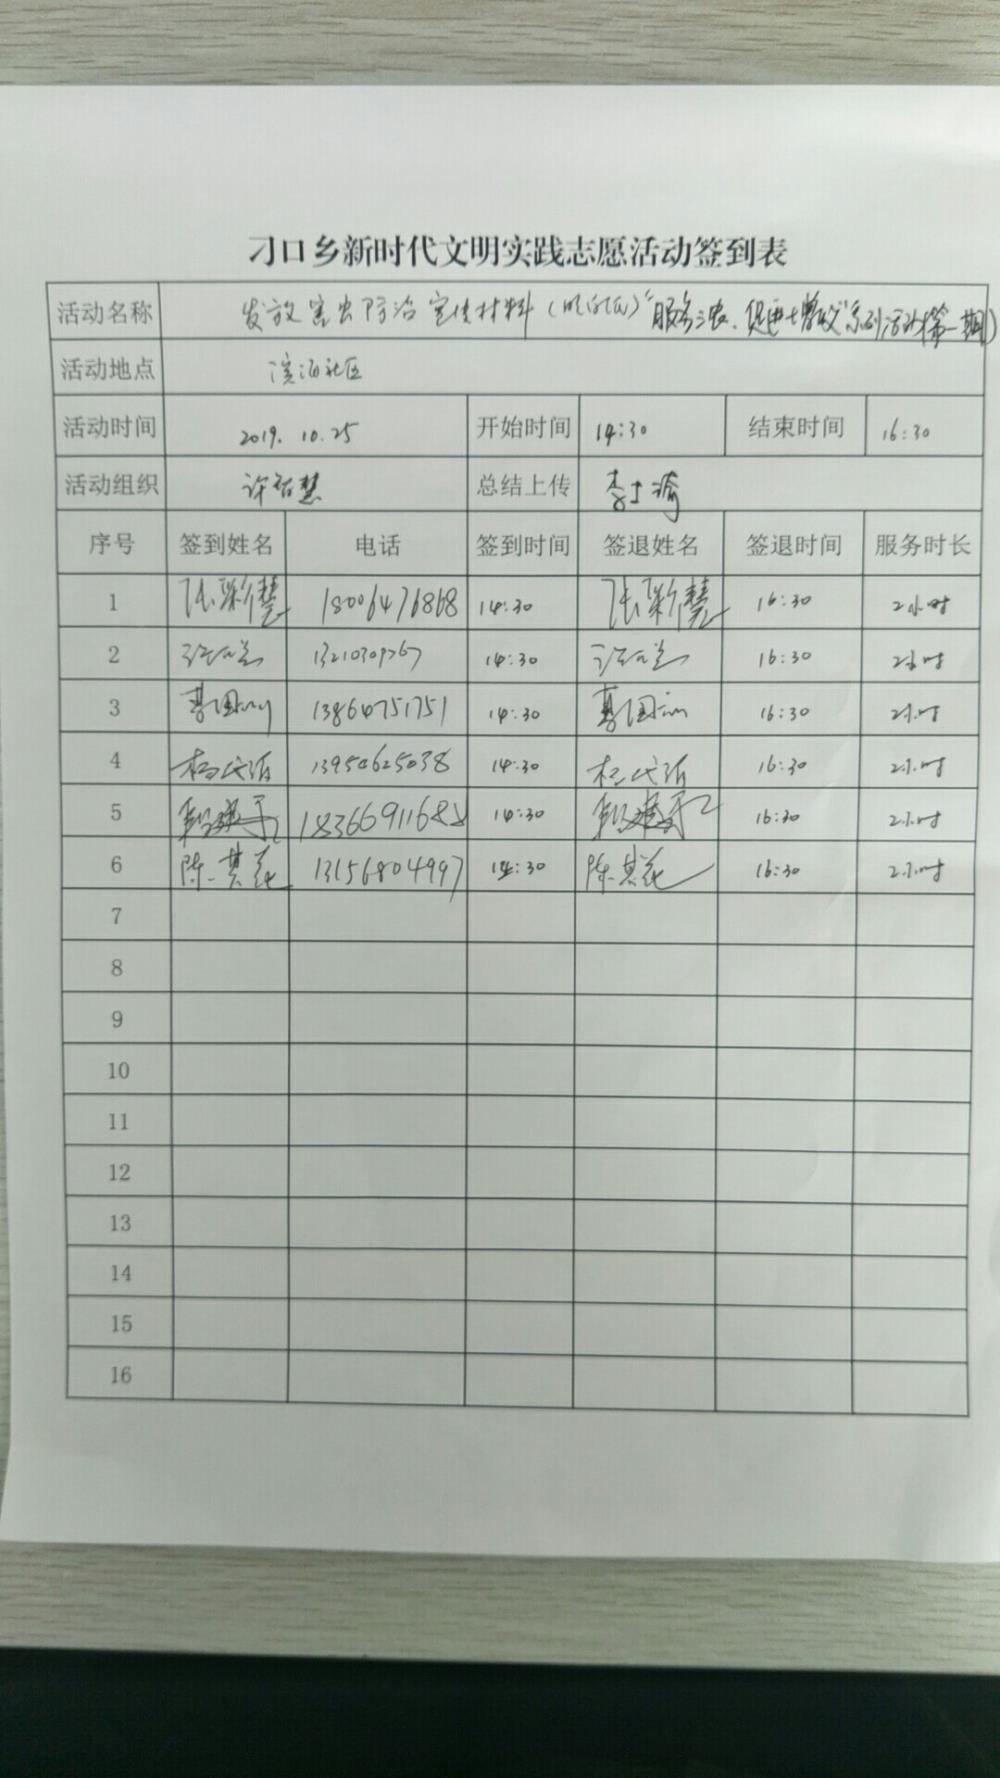 刁口乡新时代文明实践志愿活动签到表
活动名称 发放害虫防治宣传材料（明白纸）"服务三农、促进增收"系列活动（第一期）
活动地点 滨海社区
活动时间 2019.10.25 开始时间 14:30 结束时间 16:30
活动组织 许智慧 总结上传
序号 签到姓名 电话 签到时间 签退姓名 签退时间 服务时长
1 张彩慧 18006476868 14:30 张彩慧 16:30 2小时
2 14:30 16:30 2小时
3 13864751751 14:30 16:30 2小时
4 13954625038 14:30 16:30 2小时
5 14:30 16:30 2小时
6 陈其花 13156804997 14:30 陈其花 16:30 2小时
7
8
9
10
11
12
13
14
15
16